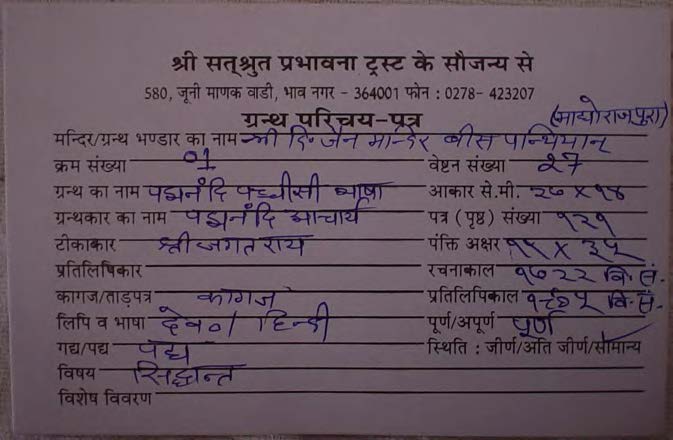 श्री सत्श्रुत प्रभावना ट्रस्ट के सौजन्य से
580, जूनी माणक वाडी, भाव नगर - 364001 फोन : 0278- 423207
ग्रन्थ परिचय-पत्र (माधोराजपुरा)
मन्दिर/ग्रन्थ भण्डार का नाम श्री दि. जैन मन्दिर बीस पान्थियान
क्रम संख्या 01 वेष्टन संख्या 27
ग्रन्थ का नाम पद्मनंदि पच्चीसी भाषा आकार से.मी. २७ X १४
ग्रन्थकार का नाम पद्मनंदि आचार्य पत्र (पृष्ठ) संख्या १२१
टीकाकार श्री जगतराय पंक्ति अक्षर १५ X ३५
प्रतिलिपिकार रचनाकाल १७२२ वि. सं.
कागज/ताड़पत्र कागज प्रतिलिपिकाल वि. सं.
लिपि व भाषा देव०/ हिन्दी पूर्ण/अपूर्ण पूर्ण
गद्य/पद्य पद्य स्थिति : जीर्ण/अति जीर्ण/सामान्य
विषय सिद्धान्त
विशेष विवरण